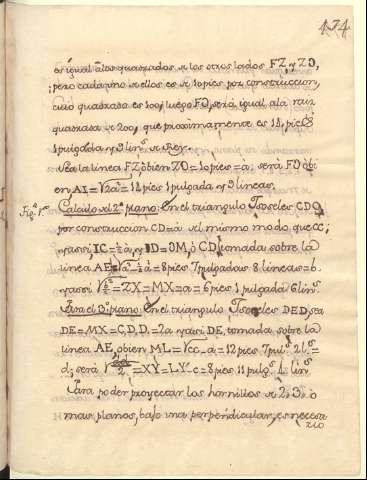 174
es igual alos quadrados de los otros lados FZ, y ZO,
; pero cada uno de ellos es de 10 pies por construccion,
cuio quadrado es 100; luego FO, será igual ala raiz
quadrada de 200, que proximamente es 14 pies
1 pulgada y 9 lin.s de Rey.
Sea la linea FZ, obien ZO = 10 pies = a: será FO obi
en AI = √2a² = 14 pies 1 pulgada y 9 lineas.
Fig.a 1.a Calculo del 2.o plano: En el triangulo Isoseles CDO,
por construccion CD = a del mismo modo que CC;
y assi, IC = ½ a, y ID = OM, ó CD, tomada sobre la
linea AE = a = 8 pies 7 pulgadas 8 lineas = b.
y assi = ZX = MX = a = 6 pies 1 pulgada 6 lin.s
Para el 3.o plano: En el triangulo Isoseles DED, sea
DE = MX = C, D, D, = 2a y assi DE, tomada sobre la
linea AE, obien ML = √cc - a = 12 pies 7 pul.s 2 l.s =
d; será = XY = LY = c = 8 pies 11 pulg.s lin.s
Para poder proyectar los hornillos de 2, 3, ó
mas planos, bajo una perpendicular, es necesa
rio